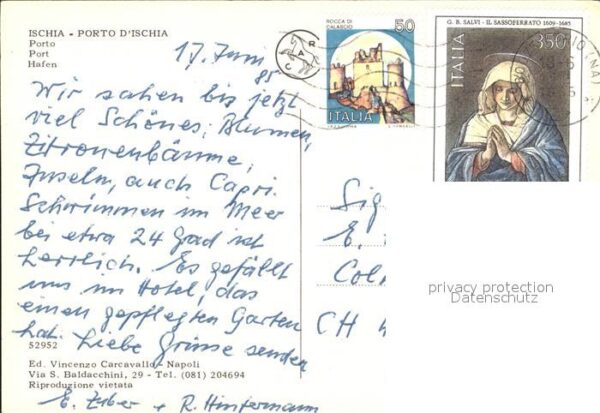 ISCHIA - PORTO D'ISCHIA
Porto
Port
Hafen
17. Juni
85
Wir sahen bis jetzt
viel Schönes; Blumen,
Zitronenbäume,
Inseln, auch Capri.
Schwimmen im Meer
bei etwa 24 Grad ist
herrlich. Es gefällt
uns im Hotel, das
einen gepflegten Garten
hat. Liebe Grüsse senden
E. Zuber + R. Hintermann
52952
Ed. Vincenzo Carcavallo - Napoli
Via S. Baldacchini, 29 - Tel. (081) 204694
Riproduzione vietata
CRA
ROCCA DI
CALASCIO
50
ITALIA
G. B. SALVI - IL SASSOFERRATO 1609-1685
ITALIA
350
(NA)
Sig
E.
Col
CH
privacy protection
Datenschutz